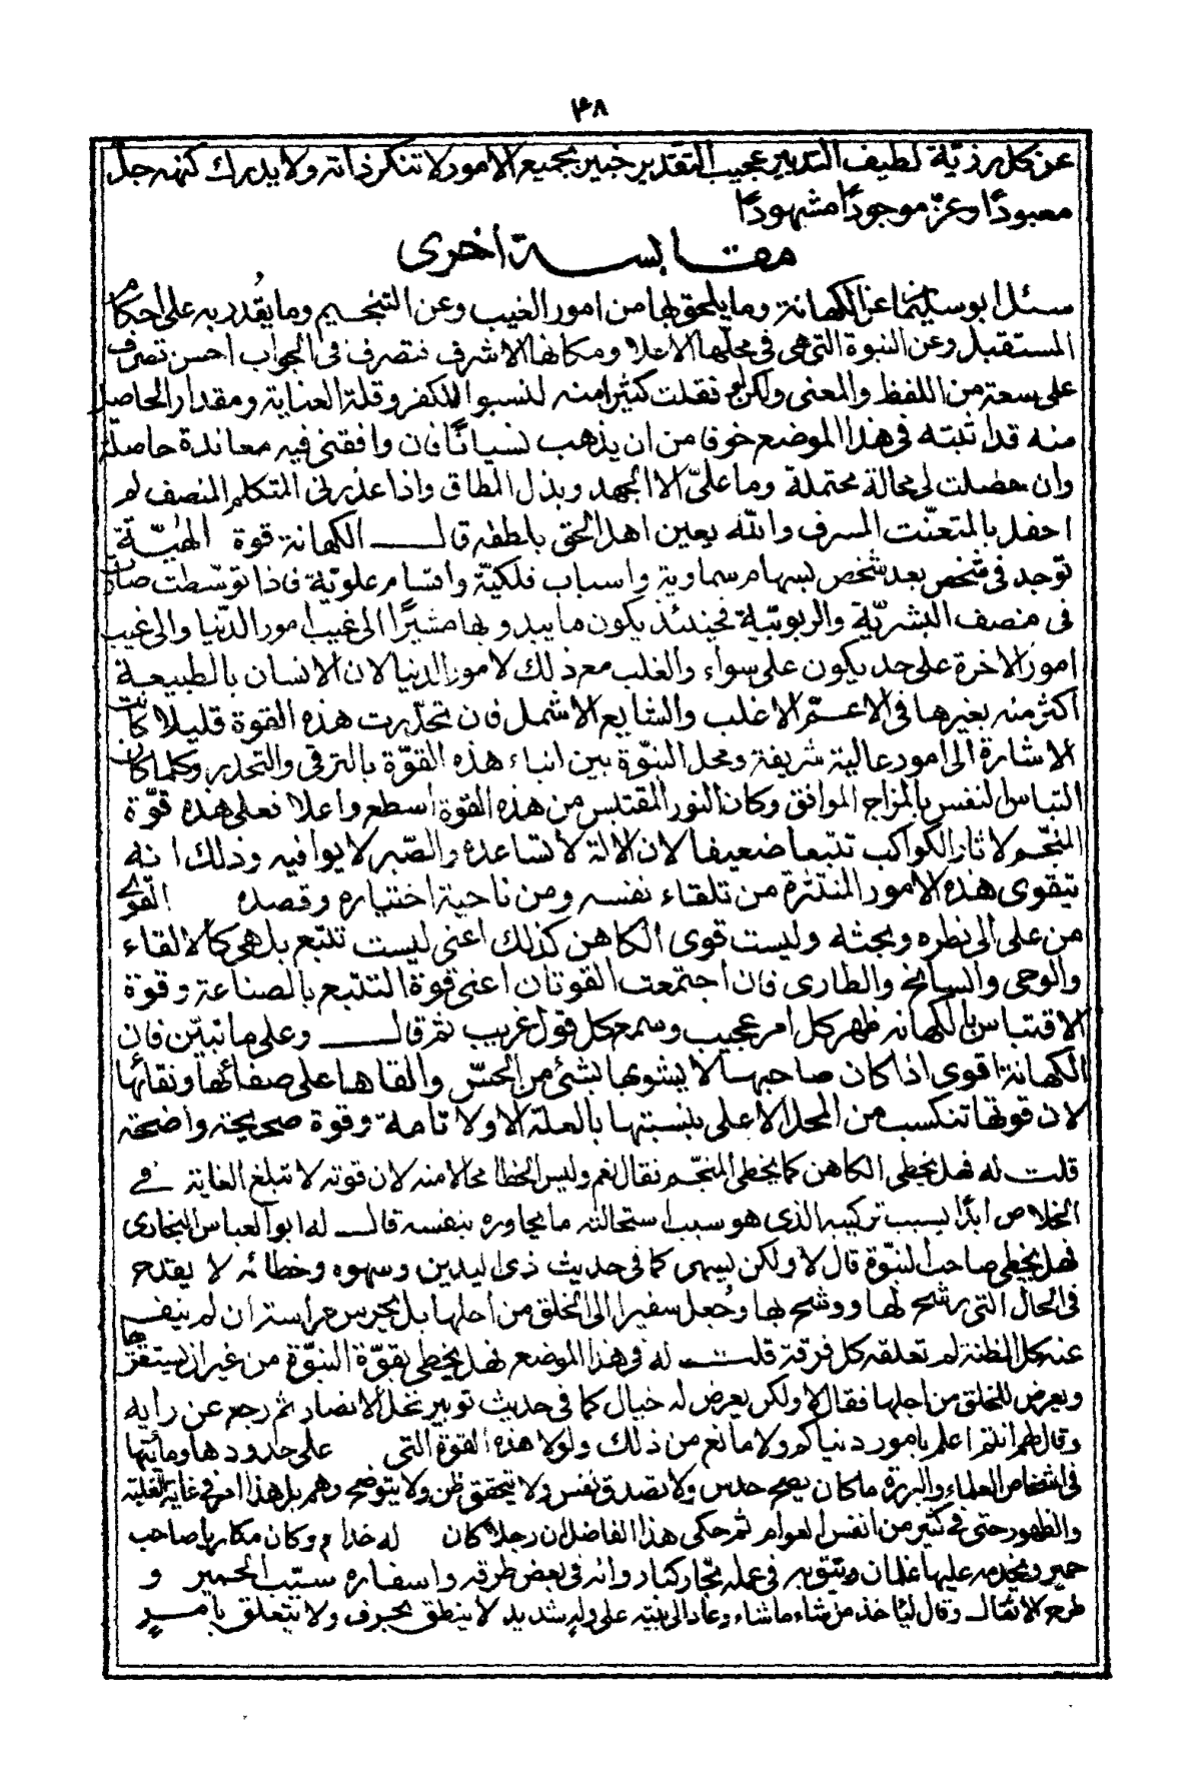 ٣٨
عن كل رزئة لطيف التدبير عجيب التقدير خبير بجميع الامور لا تنكر ذاته ولا يدرك كنهه جل
معبودًا وعزّ موجودًا مشهودًا
مقابسة اخرى
سئل ابو سليمان عن الكهانة وما يلحق بها من امور الغيب وعن التنجيم وما يقدر به على احكام
المستقبل وعن النبوة التى هى فى محلّها الاعلا ومكانها الاشرف فتصرف فى الجواب احسن تصرف
على سعة من اللفظ والمعنى ولكن لو نقلت كثيرا منه لنسبوا للكفر وقلة العناية ومقدار الحاصل
منه قد اثبته فى هذا الموضع خوفا من ان يذهب نسيانًا فان وافقنى فيه معاندة حاصلة
وان حضلت لى محالة محتملة وما علىّ الا الجهد وبذل الطاق واذا عذرنى المتكلم المنصف لم
احفل بالمتعنّت المسرف والله يعين اهل الحق بلطفه قال الكهانة قوة الهيّة
توجد فى شخص بعد شخص بسهام سماوية واسباب فلكيّة واقسام علويّة فاذا توسّطت صارت
فى منصف البشريّة والربوبيّة فحينئذ يكون ما يبدو بها مشيرًا الى غيب امور الدّنيا والى غيب
امور الاخرة على حد يكون على سواء والغلب مع ذلك لامور الدنيا لان الانسان بالطبيعة
اكثر منه بغيرها فى الاعمّ الاغلب والشايع الاشمل فان تحدّرت هذه القوة قليلا كانت
الاشارة الى امور عالية شريفة ومحل النبوّة بين انباء هذه القوّة بالترقى والتحدر وكلما كان
التباس النفس بالمزاج الموافق وكان النور المقتبس من هذه القوة اسطع واعلا فعلى هذه قوّة
المنجّم لاثار الكواكب تتبعا ضعيفا لان الالة لا تساعده والصّبر لا يوافيه وذلك انه
يتقوى هذه الامور المنتثرة من تلقاء نفسه ومن ناحية اختياره وقصده القوّى
من على الى نظره وبحثه وليست قوى الكاهن كذلك اعنى ليست تتبّع بل هى كالالقاء
والوحى والسانح والطارى فان اجتمعت القوتان اعنى قوة التتبع بالصناعة وقوة
الاقتباس بالكهانه ظهر كل امر عجيب وسمع كل قول غريب ثم قال وعلى ما تبيّن فان
الكهانة اقوى اذا كان صاحبها لا يشوبها بشئ من الحسّ والقاها على صفائها ونقائها
لان قوتها تنكسب من المحل الاعلى بنسبتها بالعلة الاولا تامة وقوة صحيحة واضحة
قلت له فهل يخطى الكاهن كما يخطى المنجّم نقال نعم وليس الخطا محالا منه لان قوته لا تبلغ الغاية فى
الخلاص ابدًا بسبب تركيبه الذى هو سبب استحالته ما يحاوره بنفسه قال له ابو العباس البخارى
فهل يخطى صاحب النبوّة قال لا ولكن يسهى كما فى حديث ذى اليدين وسهوه وخطائه لا يقدح
فى الحال التى رشح لها ووشح بها وجعل سفيرا الى الخلق من اجلها بل يحرس حراسة ان لم ينف
عنه كل الظنة لم تعلقه كل فرقة قلت له فى هذا الموضع فهل يخطى بقوّة النبوّة من غير ان يستغرّها
ويعرض للخلق من اجلها فقال لا ولكن يعرض له خيال كما فى حديث توبير نخل الانصار ثم رجع عن رايه
وقال لهم انتم اعلم بامور دنياكم ولا مانع من ذلك ولولا هذه القوة التى على حدودها ومأيتها
فى اشخاص العلماء والبررة ما كان يصح حدس ولا تصدق نفس ولا يتحقق ظن ولا يتوضح وهم بل هذا امر فى غاية الغلبة
والظهور حتى فى كثير من انفس العوام ثم حكى هذا الفاضل ان رجلا كان له خدام وكان مكاريا صاحب
حمير ويخدمه عليها غلمان ويتقوى به فى عمله تجّار كبار وانه فى بعض طرقه واسفاره سيّب الحمير و
طرح الاثقال وقال ليأخذ من شاء ما شاء وعاد الى بيته على وله شديد لا ينطق بحرف ولا يتعلق بامر